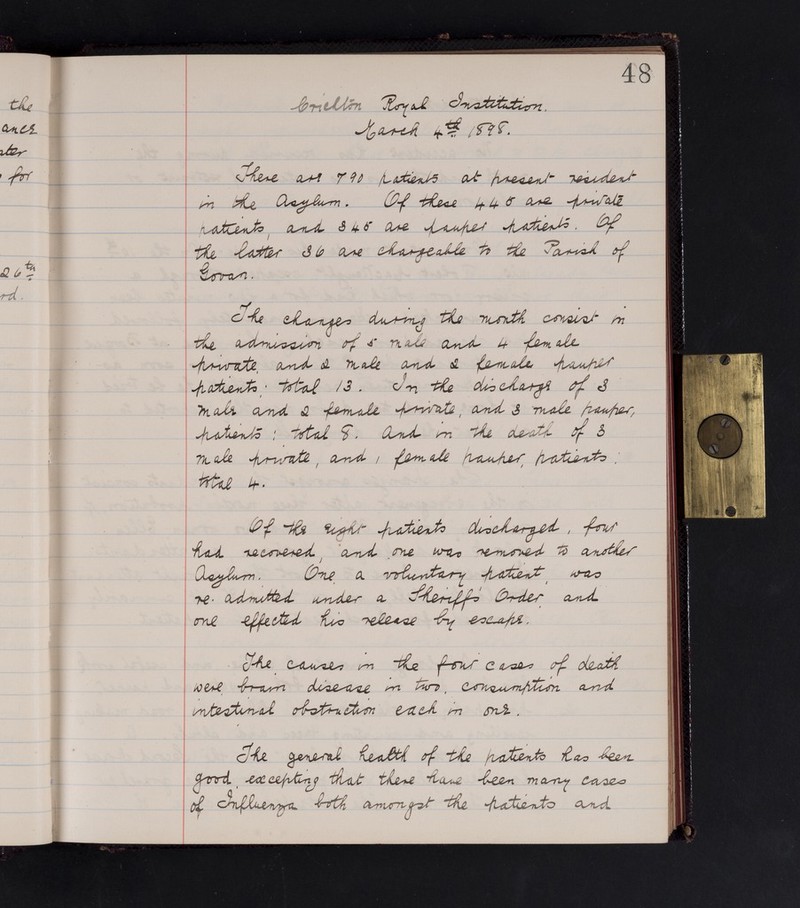 the
ance
ater
for
26th
rd.
48
Crichton Royal Institution.
March 4th 1898.
There are 790 patients at present resident
in the Asylum. Of these 445 are private
patients, and 345 are pauper patients. Of
the latter 36 are chargeable to the Parish of
Govan.
The changes during the month consist in
the admission of 5 male and 4 female
private, and 2 male and 2 female pauper
patients: total 13. In the discharge of 3
male and 2 female private, and 3 male pauper,
patients: total 8. And in the death of 3
male private, and 1 female pauper, patients:
total 4.
Of the eight patients discharged, four
had recovered, and one was removed to another
Asylum. One, a voluntary patient, was
re-admitted under a Sheriff's Order, and
one effected his release by escape.
The causes in the four cases of death
were, brain disease in two, consumption and
intestinal obstruction each in one.
The general health of the patients has been
good, excepting that there have been many cases
of Influenza both amongst the patients and